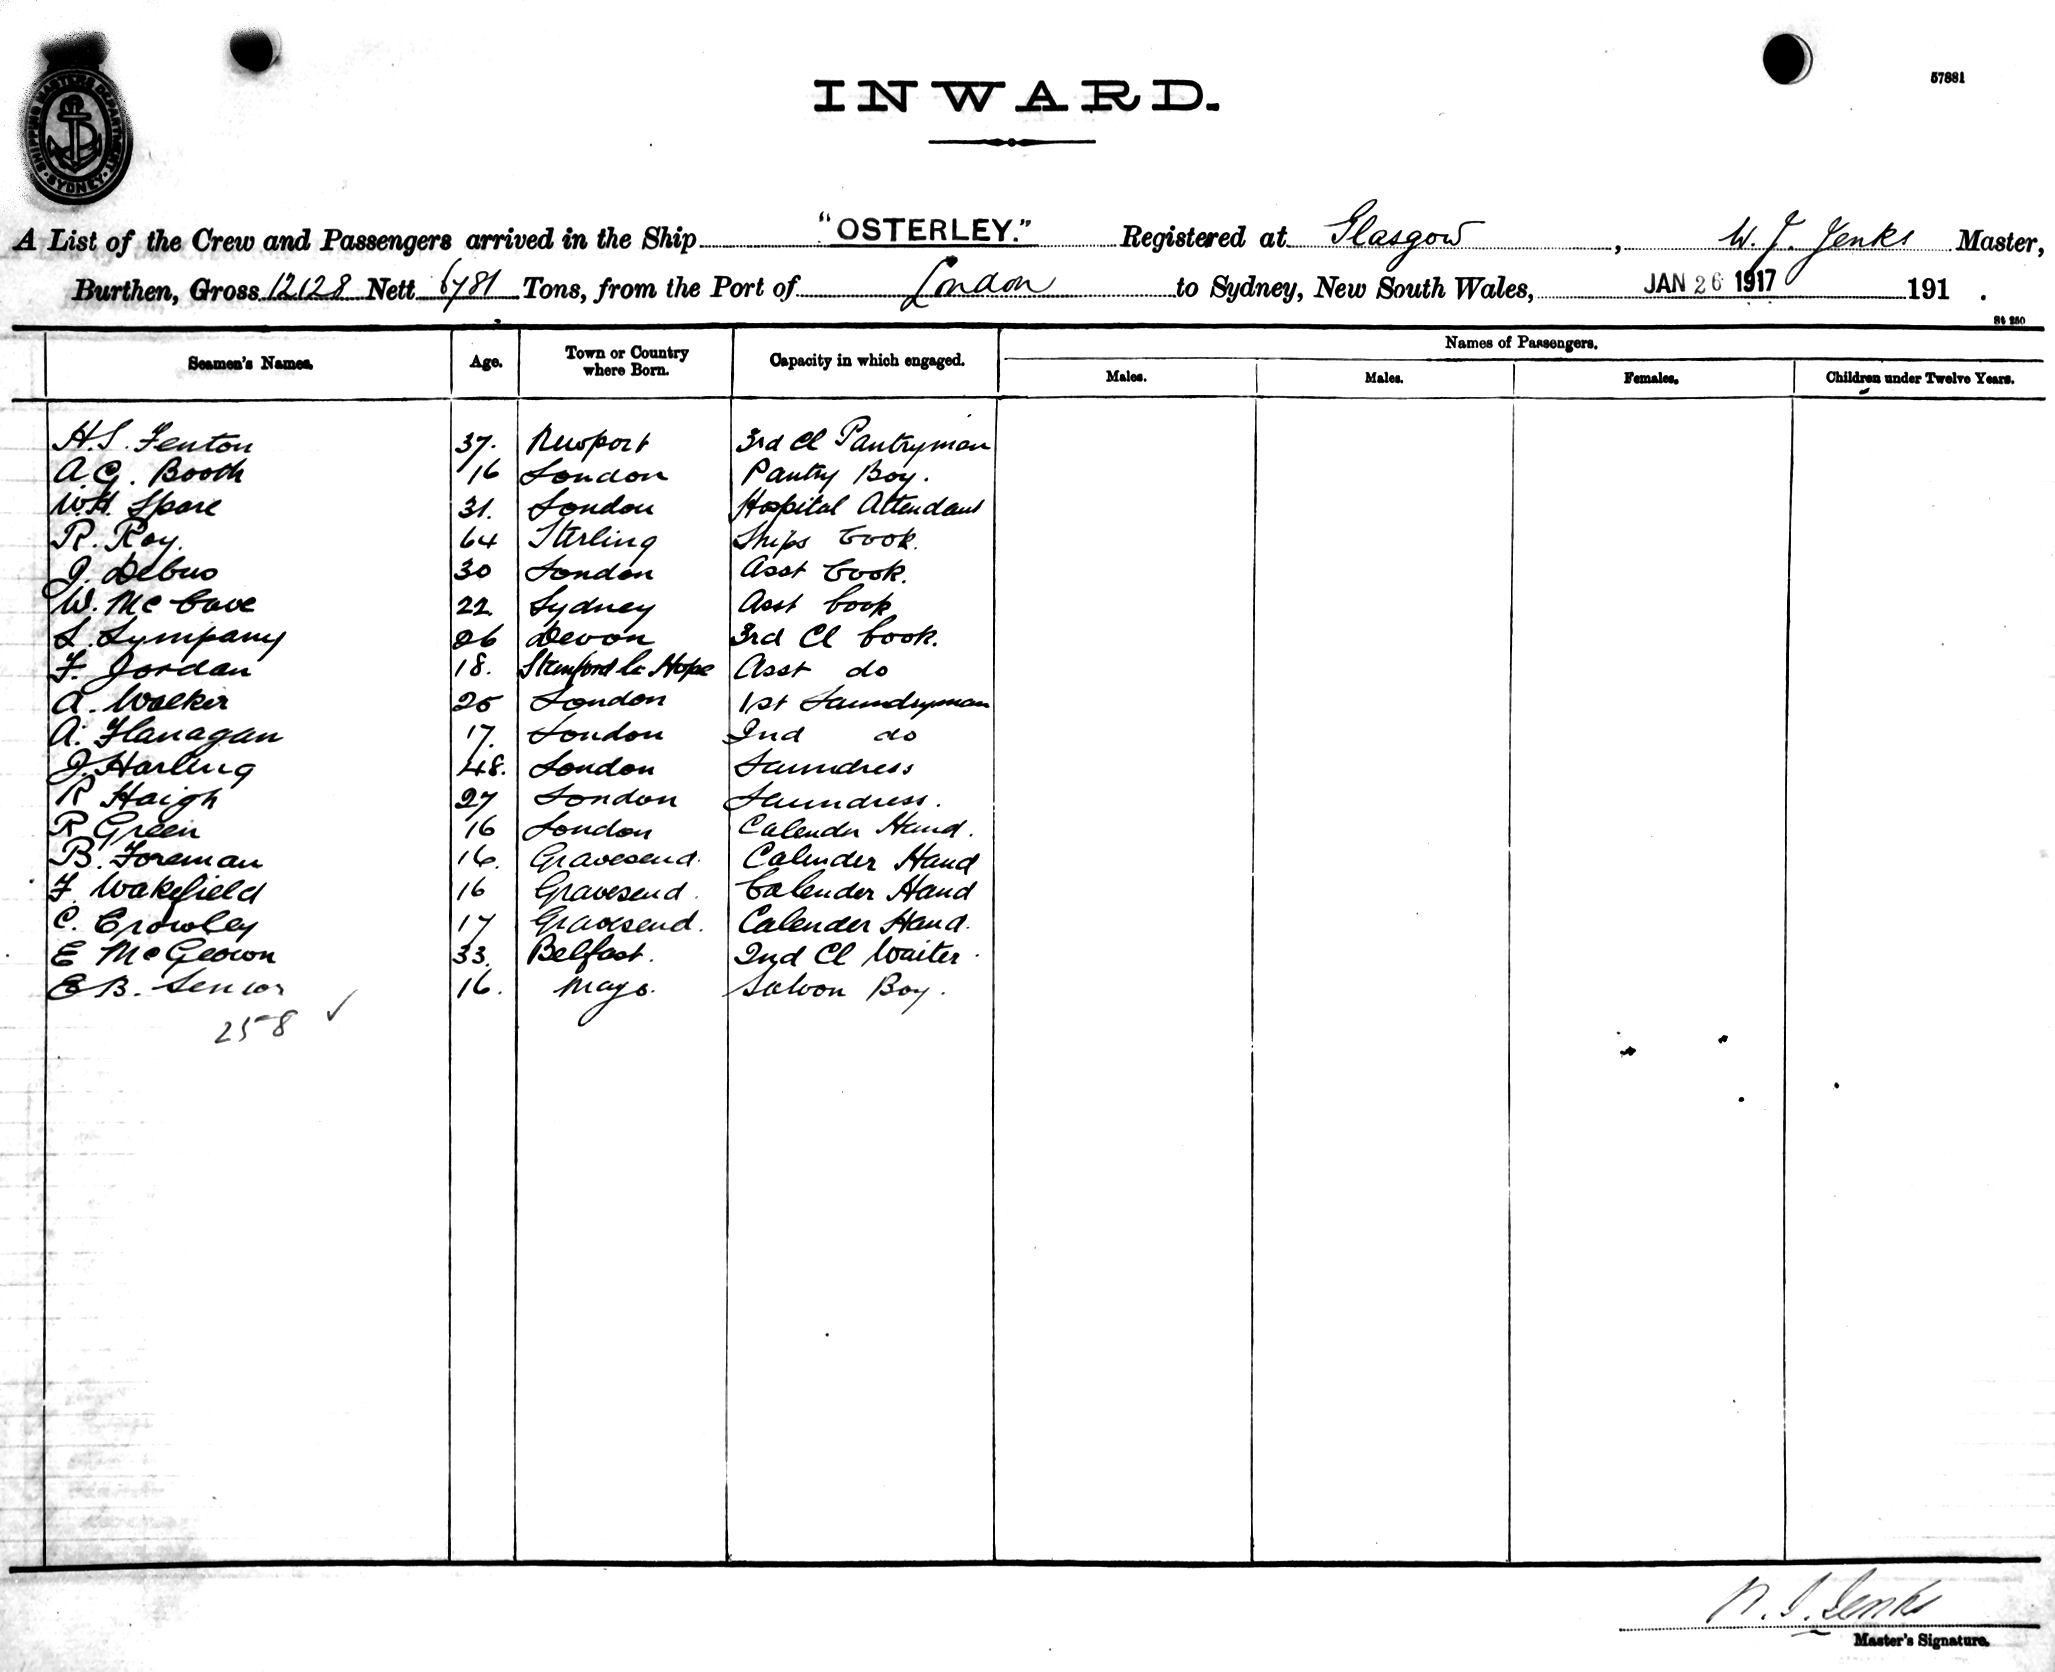 SHIPPING MASTERS DEPARTMENT
SYDNEY
57881
INWARD.
A List of the Crew and Passengers arrived in the Ship "OSTERLEY." Registered at Glasgow, W. J. Jenks Master,
Burthen, Gross 12128 Nett 6781 Tons, from the Port of London to Sydney, New South Wales, JAN 26 1917 191 .
St 250
Seamen's Names. Age. Town or Country where Born. Capacity in which engaged. Names of Passengers.
Males. Males. Females. Children under Twelve Years.
H.S. Fenton 37. Newport 3rd Cl Pantryman
A.G. Booth 16 London Pantry Boy.
W.H. Spare 31. London Hospital Attendant
R. Roy. 64 Sterling Ships Cook.
J. Debus 30 London Asst Cook.
W. McCave 22 Sydney Asst Cook
S. Sympany 26 Devon 3rd Cl Cook.
F. Jordan 18. Stanford le Hope Asst do
A. Walker 25 London 1st Laundryman
A. Flanagan 17. London 2nd do
J. Harling 48. London Laundress
R Haigh 27 London Laundress.
R Green 16 London Calender Hand.
B. Foreman 16. Gravesend. Calender Hand
F. Wakefield 16 Gravesend. Calender Hand
C. Crowley 17 Gravesend. Calender Hand.
E McGeown 33. Belfast. 2nd Cl Waiter
E B. Senior 16. Mayo. Saloon Boy.
258 ✓
W. J. Jenks
Master's Signature.